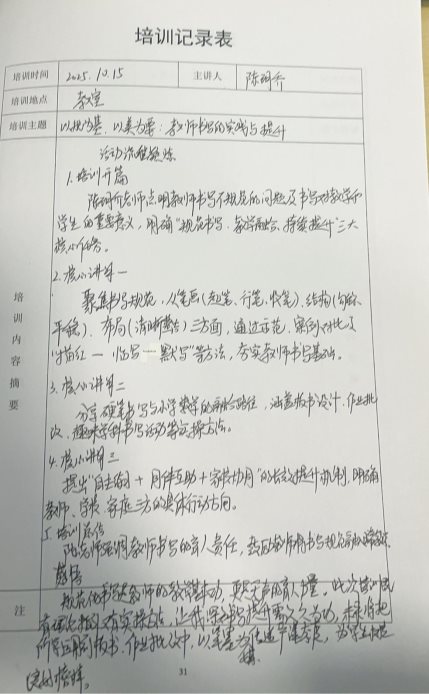 培训记录表
培训时间 2025.10.15 主讲人 陈丽乔
培训地点 教室
培训主题 以规为基,以美为要:教师书写的实践与提升
培训内容摘要
活动流程提炼
1. 培训开篇
陈丽乔老师点明教师书写不规范的问题及书写对教学和
学生的重要意义,明确“规范书写、教学融合、持续提升”三大
核心任务。
2. 核心讲解一
聚焦书写规范,从笔画(起笔、行笔、收笔)、结构(匀称、
平稳)、布局(清晰整洁)三方面,通过示范、案例对比及
“描红—临写—默写”等方法,夯实教师书写基础。
3. 核心讲解二
分享硬笔书写与小学教学的融合路径,涵盖板书设计、作业批
次、趣味学科书写活动等实操方法。
4. 核心讲解三
提出“自主练习+同伴互助+家校协同”的长效提升机制,明确
教师、学校、家庭三方的具体行动方向。
5. 培训总结
陈老师强调教师书写的育人责任,鼓励教师将书写规范融入
感悟
规范化书写是教师的教学基本功,更是无声的育人力量。此次培训既
有理论指引,有实操方法,让我明白书写提升需久久为功,未来将把
所学运用到板书、作业批改中,以笔墨为
良好榜样。
注
31